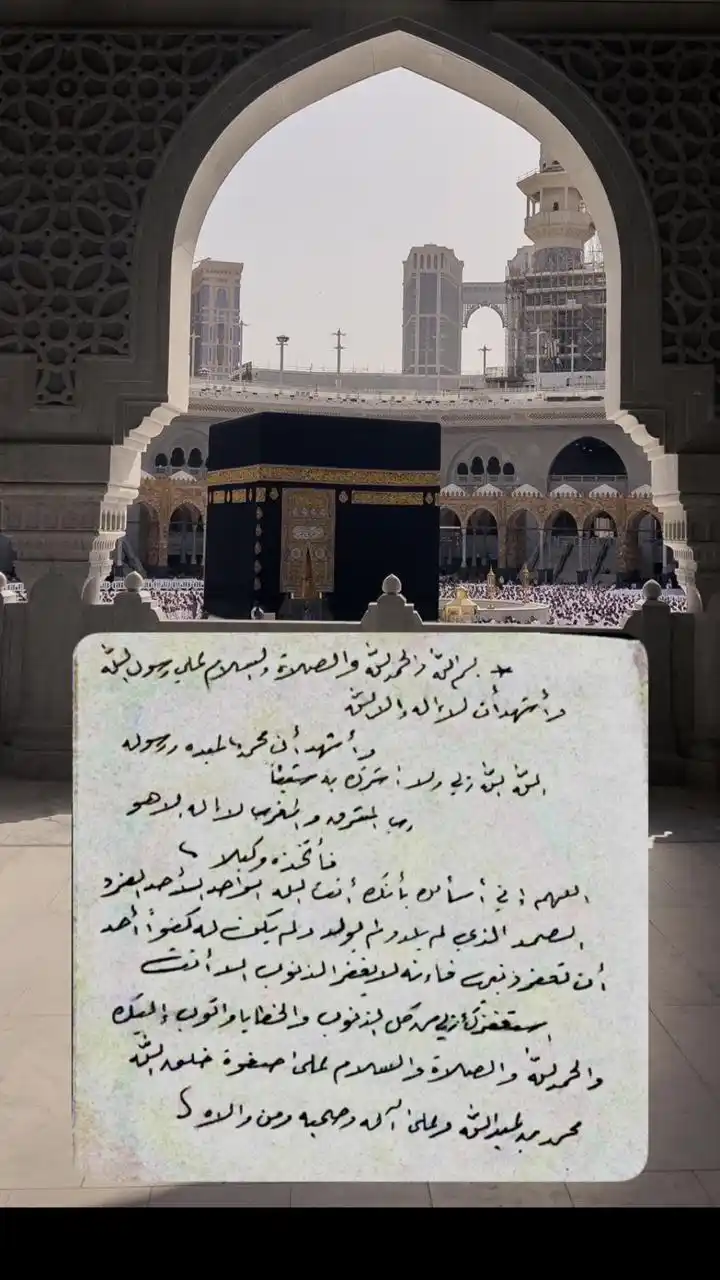 * بسم الله والحمد لله والصلاة والسلام على رسول الله
وأشهد أن لا إله إلا الله
وأشهد أن محمدا عبده ورسوله
الله الله ربي ولا أشرك به شيئا
رب المشرق والمغرب لا إله إلا هو
فأتخذه وكيلا
اللهم إني أسألك بأنك أنت الله الواحد الأحد الفرد
الصمد الذي لم يلد ولم يولد ولم يكن له كفوا أحد
أن تغفر ذنبي فإنه لا يغفر الذنوب إلا أنت
استغفرك ربي من كل الذنوب والخطايا واتوب إليك
والحمد لله والصلاة والسلام على صفوة خلق الله
محمد بن عبد الله وعلى آله وصحبه ومن والاه